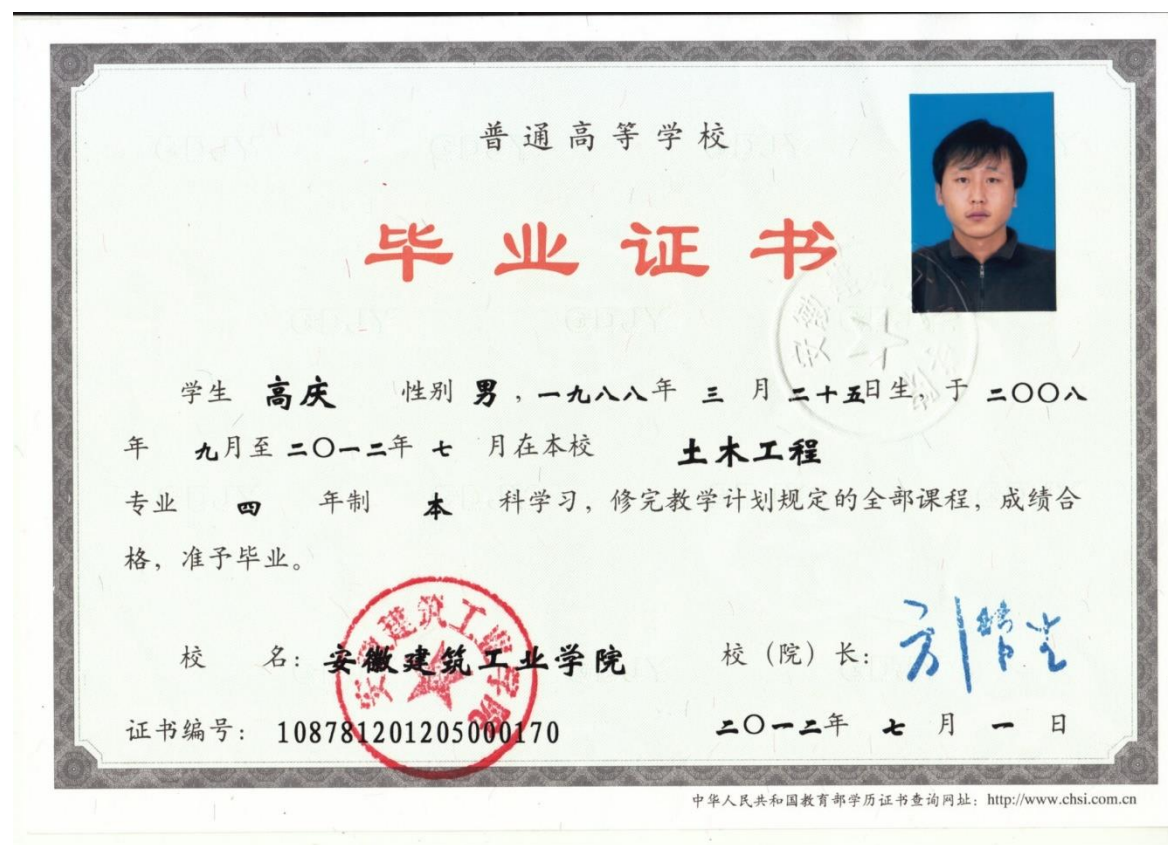 普通高等学校
毕业证书
学生 高庆 性别 男，一九八八年 三 月 二十五日生，于 二〇〇八
年 九月至 二〇一二年 七 月在本校 土木工程
专业 四 年制 本 科学习，修完教学计划规定的全部课程，成绩合
格，准予毕业。
校 名：安徽建筑工业学院 校（院）长：
安徽建筑工业学院
证书编号： 108781201205000170 二〇一二年 七 月 一 日
中华人民共和国教育部学历证书查询网址：http://www.chsi.com.cn